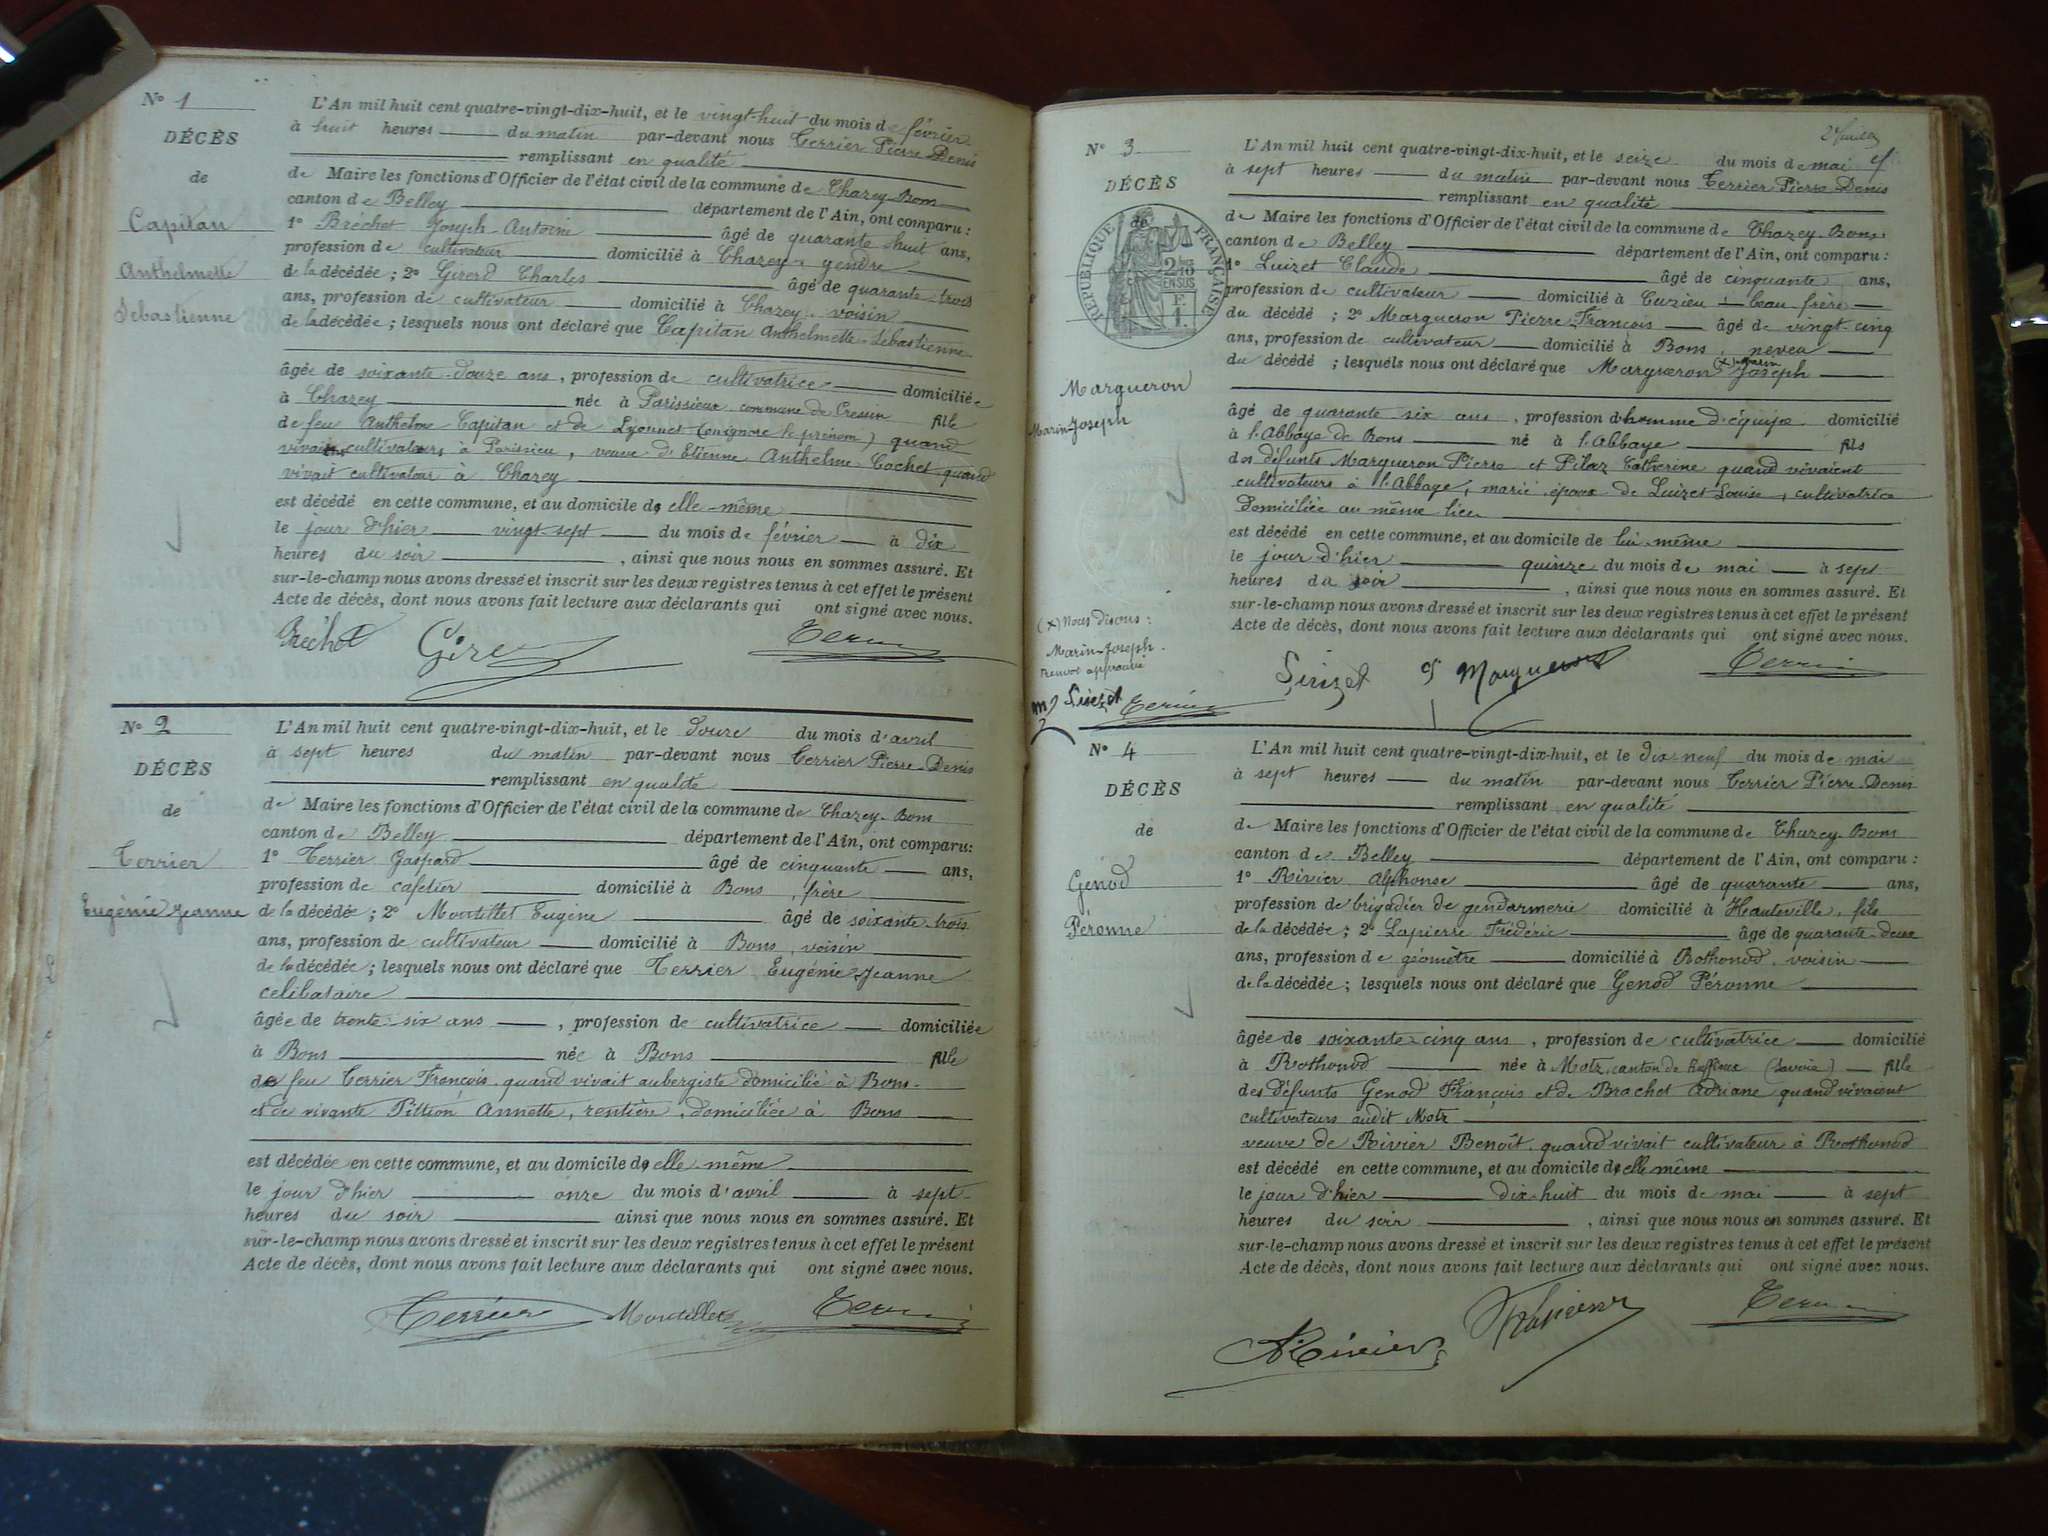 N° 1
DÉCÈS
de
Capitan
Anthelmette
Sebastienne
L'An mil huit cent quatre-vingt-dix-huit, et le vingt-huit du mois de février
à huit heures du matin par-devant nous Terrier Pierre Denis
remplissant en qualité
de Maire les fonctions d'Officier de l'état civil de la commune de Chazey-Bons
canton de Belley département de l'Ain, ont comparu :
1° Bréchet Joseph-Antoine âgé de quarante huit ans,
profession de cultivateur domicilié à Chazey, gendre
de la décédée ; 2° Girerd Charles âgé de quarante-trois
ans, profession de cultivateur domicilié à Chazey, voisin
de la décédée ; lesquels nous ont déclaré que Capitan Anthelmette-Sebastienne
âgée de soixante-douze ans, profession de cultivatrice domiciliée
à Chazey née à Parissieu commune de Cressin fille
de feu Anthelme Capitan et de Lyonnet (on ignore le prénom) quand
vivaient cultivateurs à Parisieu, veuve d'Etienne Anthelme Cochet quand
vivait cultivateur à Chazey
est décédé en cette commune, et au domicile d'elle-même
le jour d'hier vingt-sept du mois de février à dix
heures du soir, ainsi que nous nous en sommes assuré. Et
sur-le-champ nous avons dressé et inscrit sur les deux registres tenus à cet effet le présent
Acte de décès, dont nous avons fait lecture aux déclarants qui ont signé avec nous.
Bréchet Girerd Terrier
N° 2
DÉCÈS
de
Terrier
Eugénie Jeanne
L'An mil huit cent quatre-vingt-dix-huit, et le douze du mois d'avril
à sept heures du matin par-devant nous Terrier Pierre-Denis
remplissant en qualité
de Maire les fonctions d'Officier de l'état civil de la commune de Chazey-Bons
canton de Belley département de l'Ain, ont comparu:
1° Terrier Gaspard âgé de cinquante ans,
profession de cafetier domicilié à Bons, frère
de la décédée ; 2° Montillet Eugène âgé de soixante-trois
ans, profession de cultivateur domicilié à Bons, voisin
de la décédée ; lesquels nous ont déclaré que Terrier Eugénie Jeanne
célibataire
âgée de trente-six ans, profession de cultivatrice domiciliée
à Bons née à Bons fille
de feu Terrier François quand vivait aubergiste domicilié à Bons
et de vivante Pittion Annette, rentière, domiciliée à Bons
est décédée en cette commune, et au domicile d'elle-même
le jour d'hier onze du mois d'avril à sept
heures du soir ainsi que nous nous en sommes assuré. Et
sur-le-champ nous avons dressé et inscrit sur les deux registres tenus à cet effet le présent
Acte de décès, dont nous avons fait lecture aux déclarants qui ont signé avec nous.
Terrier Montillet Terrier
2e feuillet
N° 3
DÉCÈS
de
RÉPUBLIQUE FRANÇAISE
2/10
EN SUS
F.
1.
Margueron
Marin-Joseph
L'An mil huit cent quatre-vingt-dix-huit, et le seize du mois de mai
à sept heures du matin par-devant nous Terrier Pierre Denis
remplissant en qualité
de Maire les fonctions d'Officier de l'état civil de la commune de Chazey-Bons
canton de Belley département de l'Ain, ont comparu :
1° Luizet Claude âgé de cinquante ans,
profession de cultivateur domicilié à Cuzieu, beau frère
du décédé ; 2° Margueron Pierre François âgé de vingt-cinq
ans, profession de cultivateur domicilié à Bons, neveu
du décédé ; lesquels nous ont déclaré que Margueron (x) Marin Joseph
âgé de quarante six ans, profession d'homme d'équipe domicilié
à l'Abbaye de Bons né à l'Abbaye fils
des défunts Margueron Pierre et Pilaz Catherine quand vivaient
cultivateurs à l'Abbaye, marié époux de Luizet Louise, cultivatrice
Domiciliée au même lieu
est décédé en cette commune, et au domicile de lui-même
le jour d'hier quinze du mois de mai à sept
heures du soir, ainsi que nous nous en sommes assuré. Et
sur-le-champ nous avons dressé et inscrit sur les deux registres tenus à cet effet le présent
Acte de décès, dont nous avons fait lecture aux déclarants qui ont signé avec nous.
(x) Nous disons :
Marin-Joseph.
renvoi approuvé
Luizet Terrier
Luizet Margueron Terrier
N° 4
DÉCÈS
de
Génod
Péronne
L'An mil huit cent quatre-vingt-dix-huit, et le dix neuf du mois de mai
à sept heures du matin par-devant nous Terrier Pierre-Denis
remplissant en qualité
de Maire les fonctions d'Officier de l'état civil de la commune de Chazey-Bons
canton de Belley département de l'Ain, ont comparu :
1° Rivier Alphonse âgé de quarante ans,
profession de brigadier de gendarmerie domicilié à Hauteville, fils
de la décédée ; 2° Lapierre Frédéric âgé de quarante-deux
ans, profession de géomètre domicilié à Rothonod, voisin
de la décédée ; lesquels nous ont déclaré que Genod Péronne
âgée de soixante-cinq ans, profession de cultivatrice domicilié
à Rothonod née à Motz, canton de Ruffieux (Savoie) fille
des défunts Genod François et de Brachet Adriane quand vivaient
cultivateurs audit Motz
veuve de Rivier Benoît quand vivait cultivateur à Rothonod
est décédé en cette commune, et au domicile d'elle même
le jour d'hier dix-huit du mois de mai à sept
heures du soir, ainsi que nous nous en sommes assuré. Et
sur-le-champ nous avons dressé et inscrit sur les deux registres tenus à cet effet le présent
Acte de décès, dont nous avons fait lecture aux déclarants qui ont signé avec nous.
ARivier Lapierre Terrier